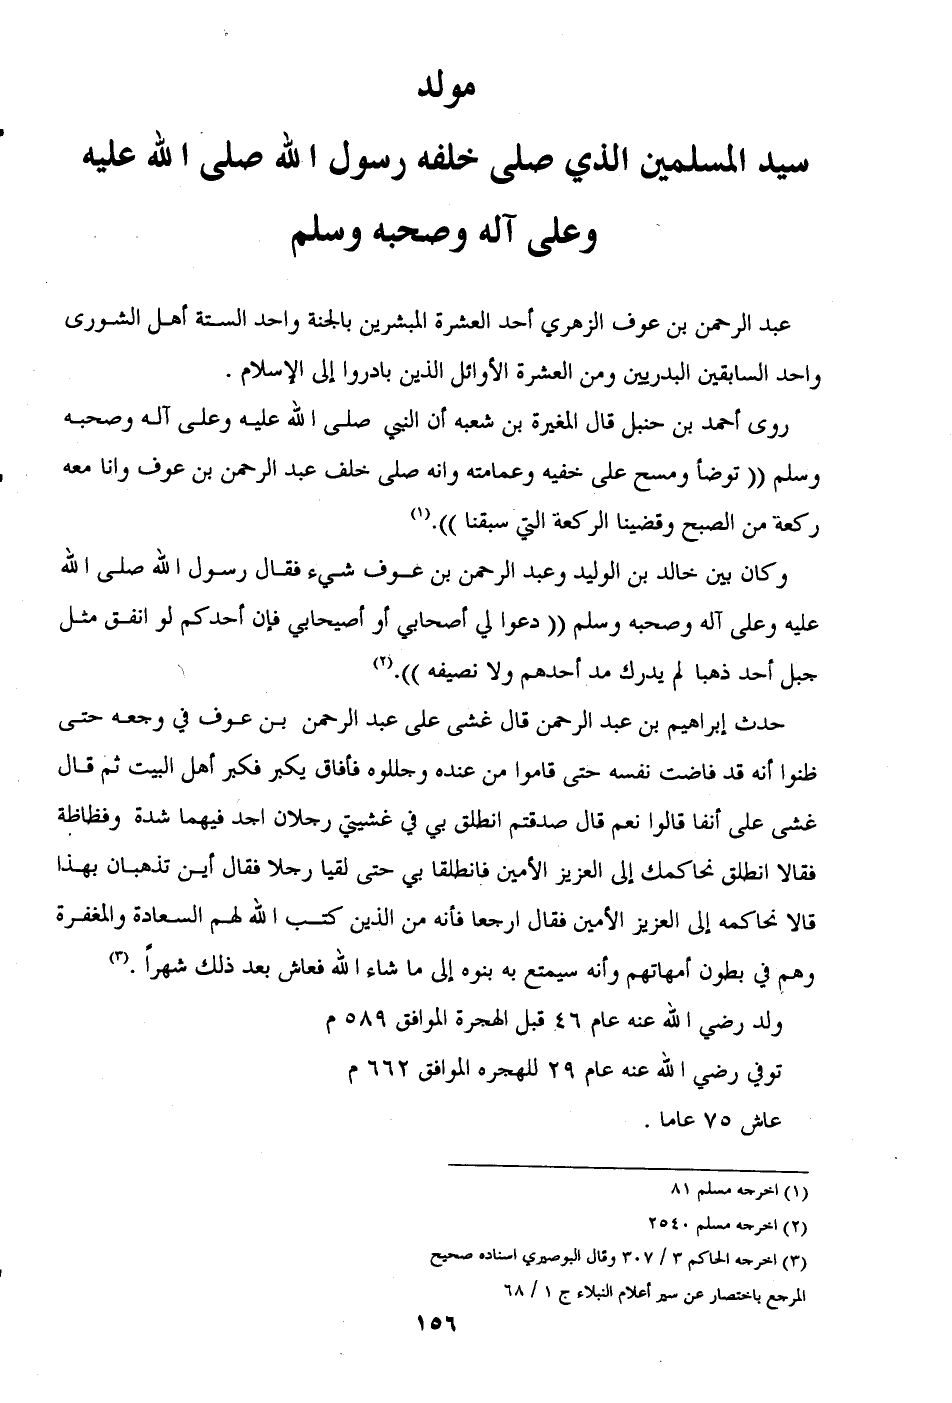 مولد
سيد المسلمين الذي صلى خلفه رسول الله صلى الله عليه
وعلى آله وصحبه وسلم
عبد الرحمن بن عوف الزهري أحد العشرة المبشرين بالجنة واحد الستة أهل الشورى
واحد السابقين البدريين ومن العشرة الأوائل الذين بادروا إلى الإسلام .
روى أحمد بن حنبل قال المغيرة بن شعبه أن النبي صلى الله عليه وعلى آله وصحبه
وسلم (( توضأ ومسح على خفيه وعمامته وانه صلى خلف عبد الرحمن بن عوف وانا معه
ركعة من الصبح وقضينا الركعة التي سبقنا )).(١)
وكان بين خالد بن الوليد وعبد الرحمن بن عوف شيء فقال رسول الله صلى الله
عليه وعلى آله وصحبه وسلم (( دعوا لي أصحابي أو أصيحابي فإن أحدكم لو انفق مثل
جبل أحد ذهبا لم يدرك مد أحدهم ولا نصيفه )).(٢)
حدث إبراهيم بن عبد الرحمن قال غشى على عبد الرحمن بن عوف في وجعه حتى
ظنوا أنه قد فاضت نفسه حتى قاموا من عنده وجللوه فأفاق يكبر فكبر أهل البيت ثم قال
غشى على أنفا قالوا نعم قال صدقتم انطلق بي في غشيتي رجلان اجد فيهما شدة وفظاظة
فقالا انطلق نحاكمك إلى العزيز الأمين فانطلقا بي حتى لقيا رجلا فقال أين تذهبان بهذا
قالا نحاكمه إلى العزيز الأمين فقال ارجعا فأنه من الذين كتب الله لهم السعادة والمغفرة
وهم في بطون أمهاتهم وأنه سيمتع به بنوه إلى ما شاء الله فعاش بعد ذلك شهراً .(٣)
ولد رضي الله عنه عام ٤٦ قبل الهجرة الموافق ٥٨٩ م
توفي رضي الله عنه عام ٢٩ للهجره الموافق ٦٦٢ م
عاش ٧٥ عاما .
(١) اخرجه مسلم ٨١
(٢) اخرجه مسلم ٢٥٤٠
(٣) اخرجه الحاكم ٣ / ٣٠٧ وقال البوصيري اسناده صحيح
المرجع باختصار عن سير أعلام النبلاء ج ١ / ٦٨
١٥٦